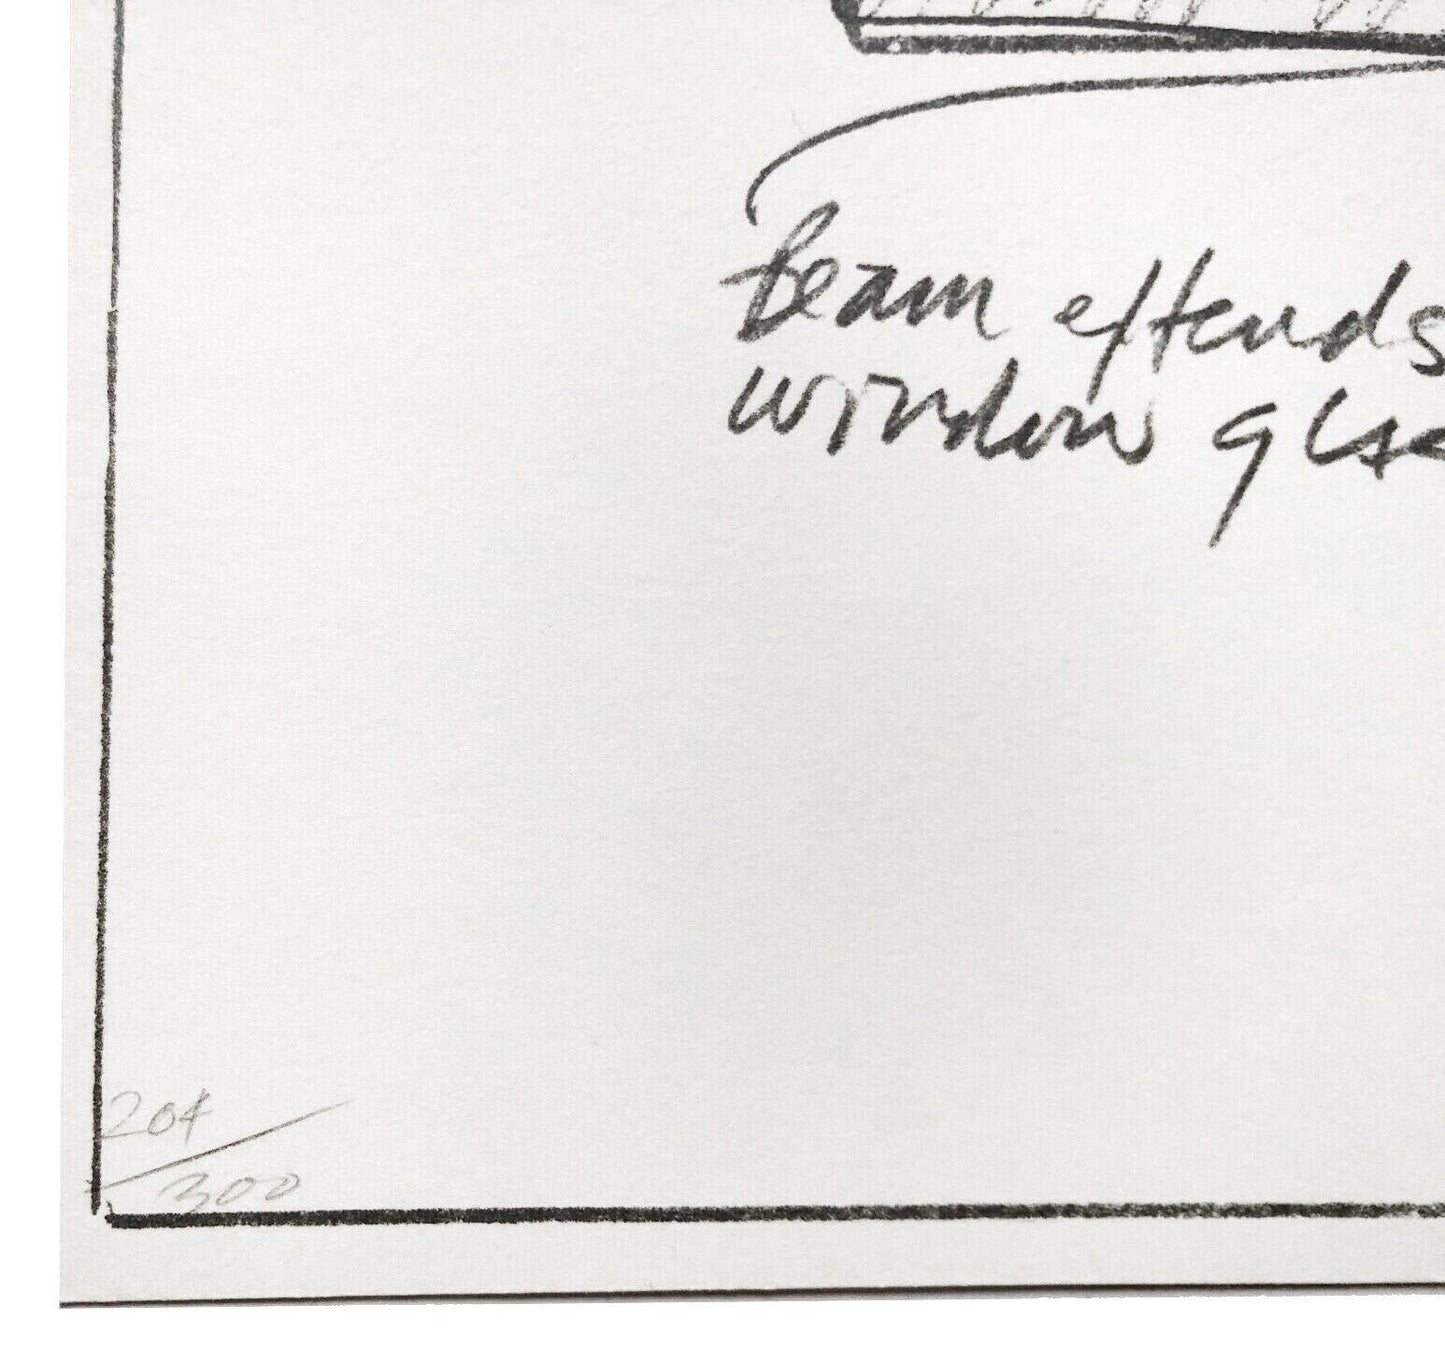 Beam extends
window glas
204/300